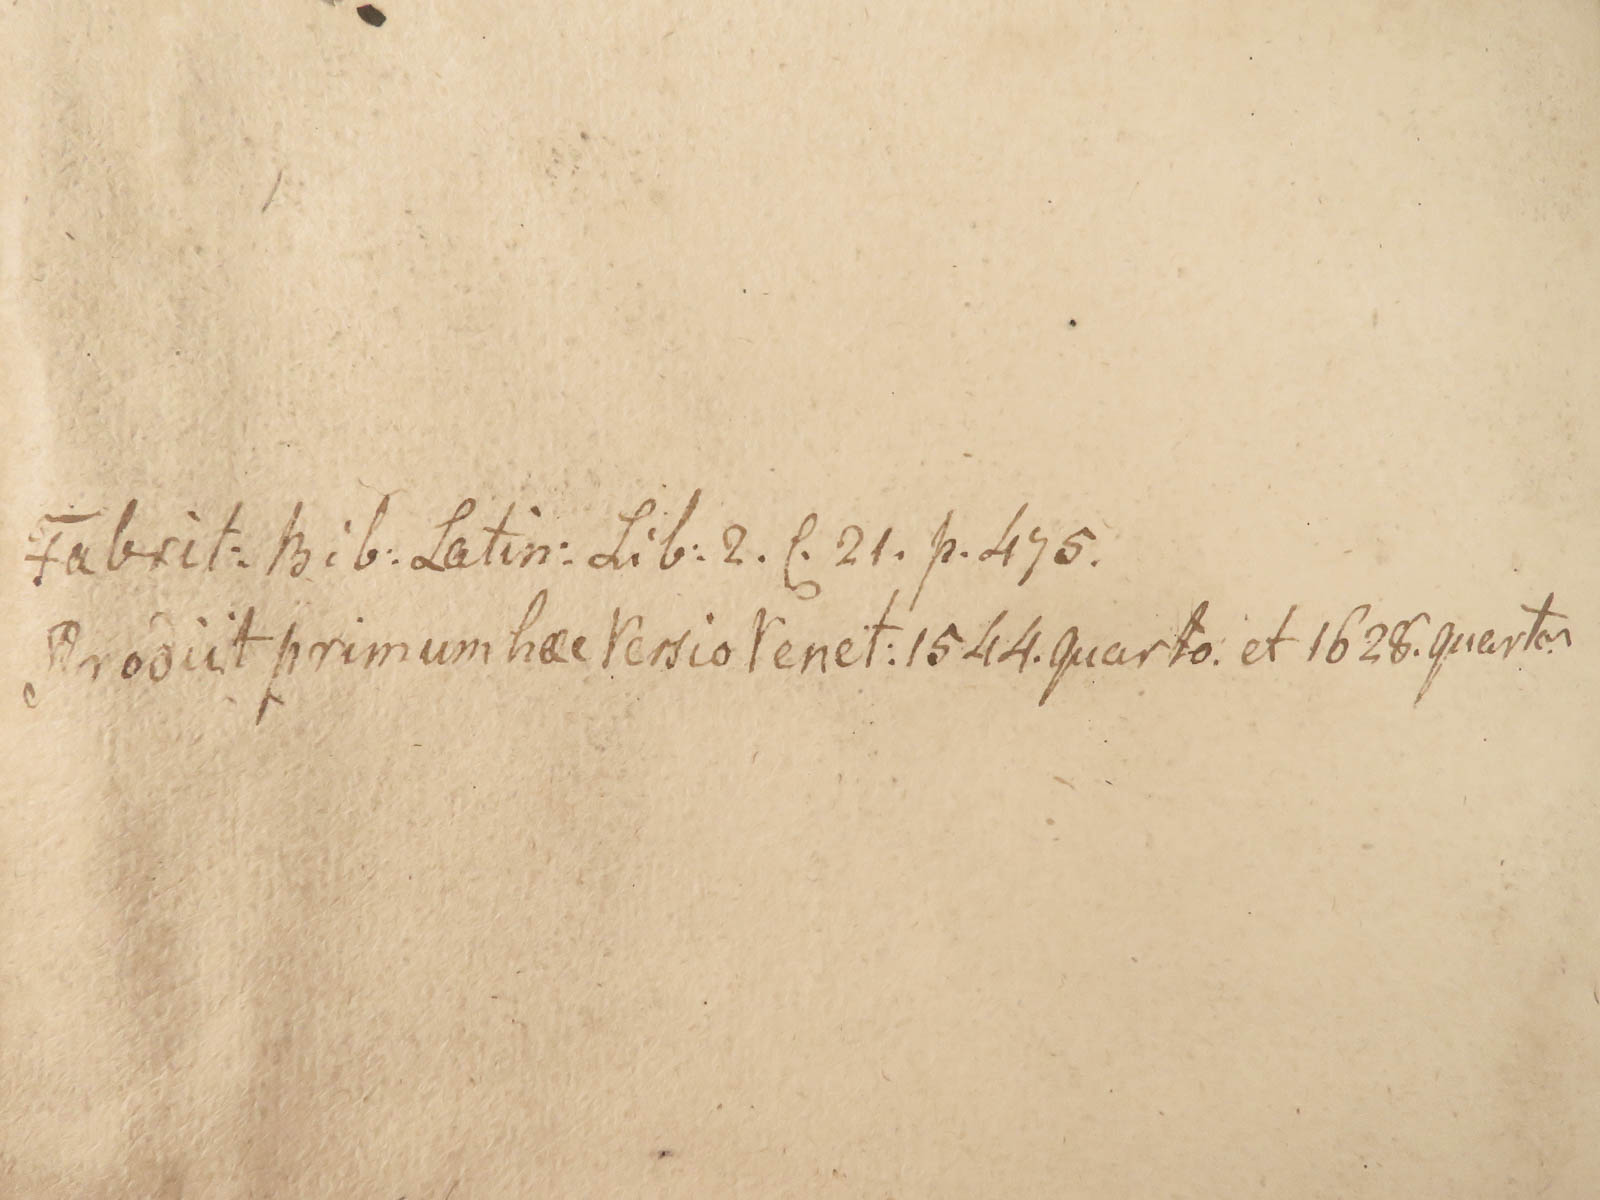 Fabrit: Bib: Latin: Lib: 2. C. 21. p. 475.
Prodiit primum hæc Versio Venet: 1544. quarto. et 1628. quarto.